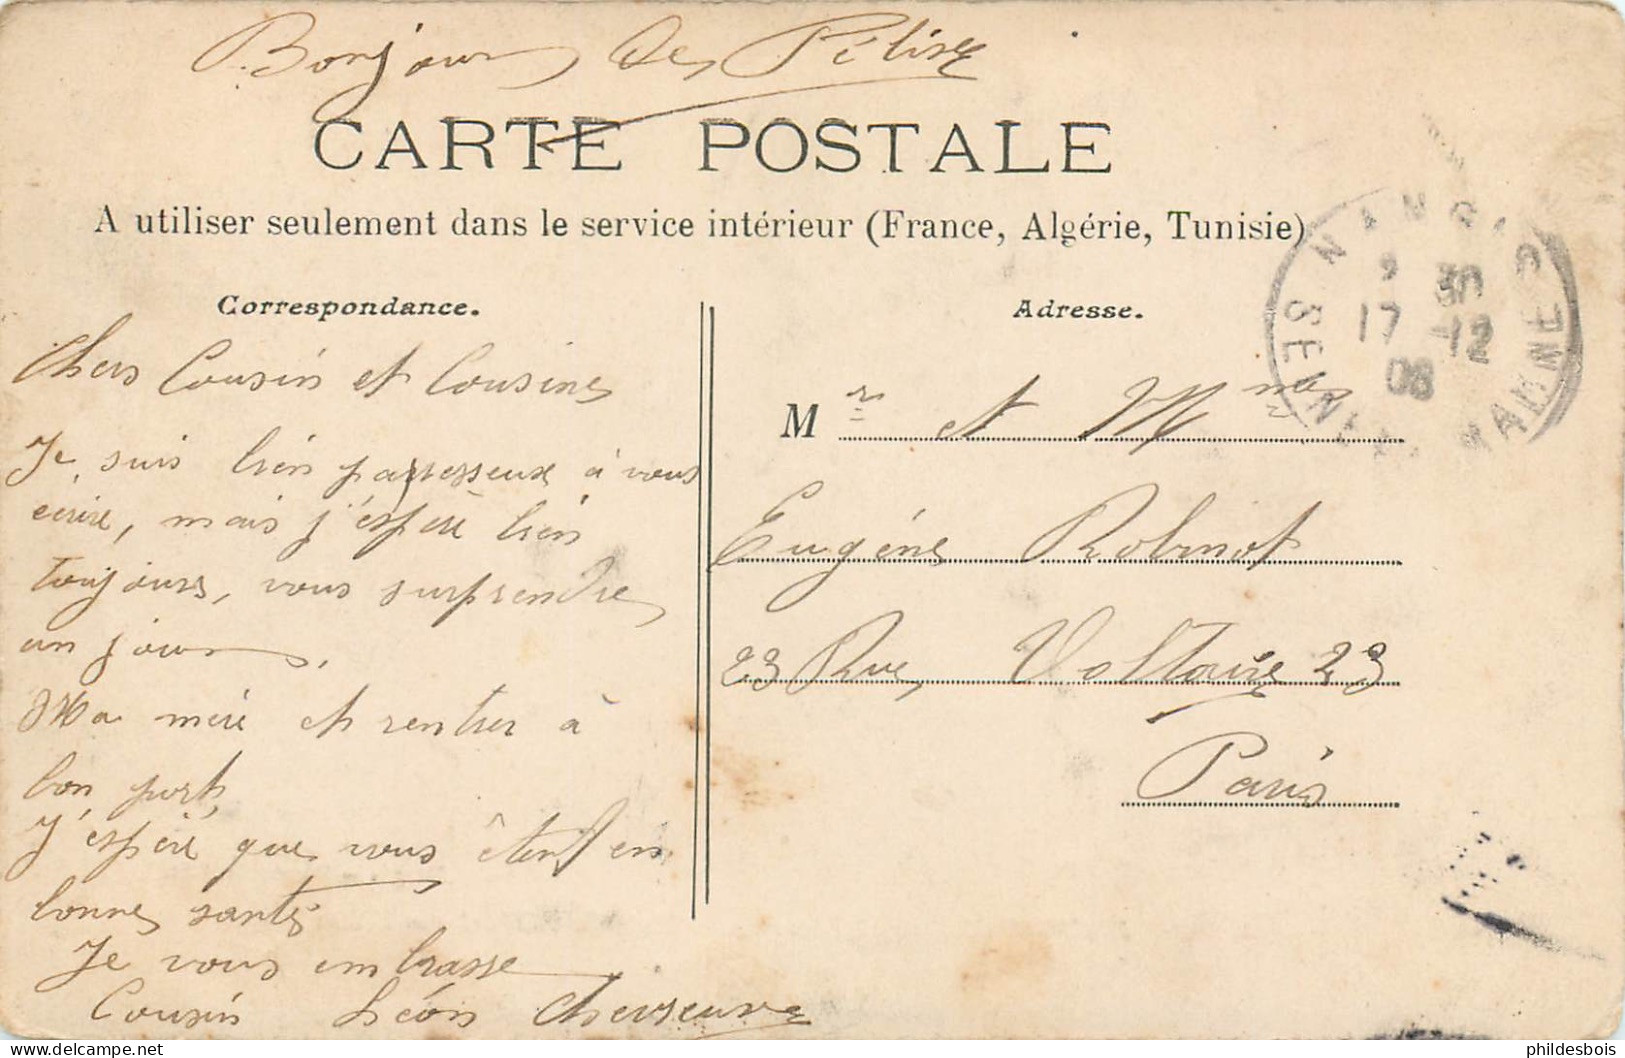 Bonjour de Félise
CARTE POSTALE
A utiliser seulement dans le service intérieur (France, Algérie, Tunisie)
Correspondance.
Chers Cousin et Cousine
Je suis bien paresseux à vous
écrire, mais j'espère bien
toujours, vous surprendre
un jour.
Ma mère et rentrer à
bon port,
J'espère que vous ête en
bonne santé
Je vous embrasse
Cousin Léon
Adresse.
Mr et Mme
Eugéne Robinot
23 Rue, Voltaire 23
Paris
NANGIS
30
17 -12
08
SEINE ET MARNE
phildesbois